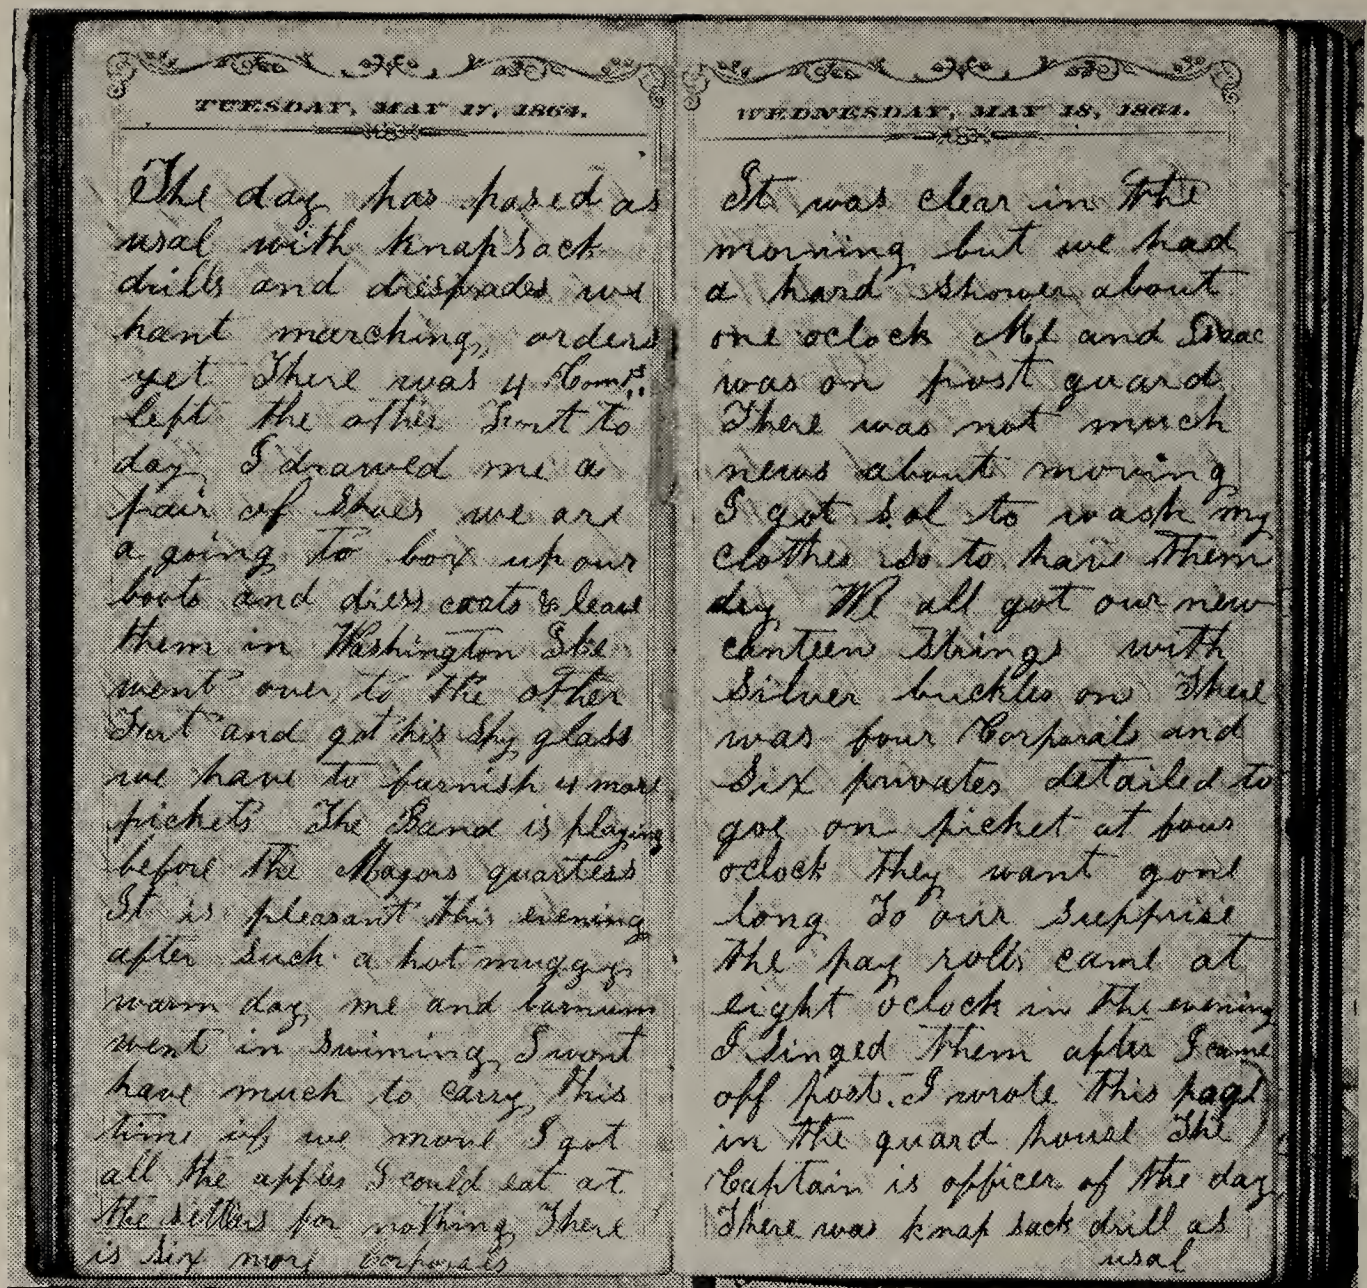 TUESDAY, MAY 17, 1864.
The day has pased as
usal with knapsack
drills and dresprades we
hant marching orders
yet There was 4 Comps
left the other Fort to
day I drawed me a
pair of Shoes we are
a going to box up our
boots and dress coats & leave
them in Washington
went over to the other
Fort and got his Spy glass
we have to furnish 4 more
pickets The Band is playing
before the Magors quarters
It is pleasant this evening
after such a hot muggy
warm day me and barnum
went in swiming I wont
have much to carry this
time if we move I got
all the apples I could eat at
the setlers for nothing There
is six more corporals
WEDNESDAY, MAY 18, 1864.
It was clear in the
morning but we had
a hard shower about
one oclock Me and Isaac
was on post guard
There was not much
news about moving
I got Sol to wash my
clothes so to have them
dry We all got our new
canteen strings with
Silver buckles on There
was four Corporals and
Six privates detailed to
goe on picket at four
oclock they want gone
long To our supprise
the pay rolls came at
eight oclock in the evening
I singed them after I came
off post. I wrote this page
in the guard house The
Captain is officer of the day
There was knap sack drill as
usal